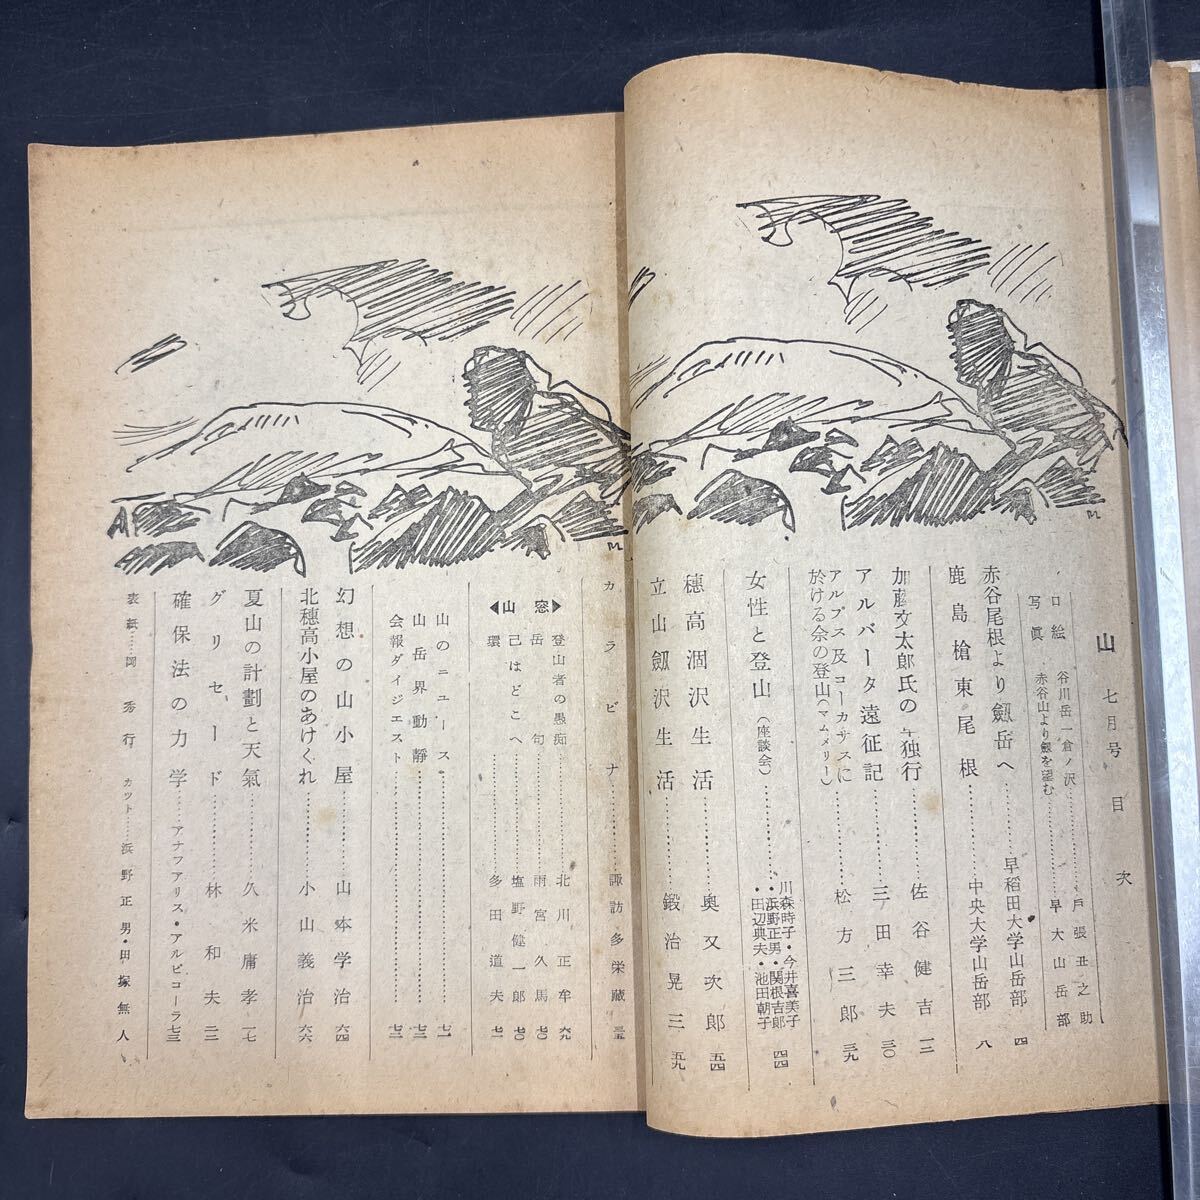 山 七月号 目次
口絵 谷川岳一倉ノ沢……戸張丑之助
写真 赤谷山より劔を望む……早大山岳部
赤谷尾根より劔岳へ……早稲田大学山岳部 四
鹿島槍東尾根……中央大学山岳部 八
加藤文太郎氏の単独行……佐谷健吉 一二
アルバータ遠征記……三田幸夫 三〇
アルプス及コーカサスに
於ける余の登山(マムメリー)……松方三郎 三九
女性と登山(座談会)……川森時子・今井喜美子
・浜野正男・関根吉郎
・田辺典夫・池田朝子 四四
穂高涸沢生活……奥又次郎 五四
立山劔沢生活……鍛治晃三 五九
カラビナ……諏訪多栄蔵 三五
◀山窓▶
登山者の愚痴……北川正牟 六九
岳句……雨宮久馬 七〇
己はどこへ……塩野健一郎 七〇
環……多田道夫 七一
山のニュース……七一
山岳界動靜……七三
会報ダイジェスト……七二
幻想の山小屋……山本学治 六四
北穂高小屋のあけくれ……小山義治 六六
夏山の計劃と天氣……久米庸孝 一七
グリセード……林和夫 二二
確保法の力学……アナフアリス・アルビコーラ 七三
表紙……岡秀行 カット……浜野正男・田塚無人